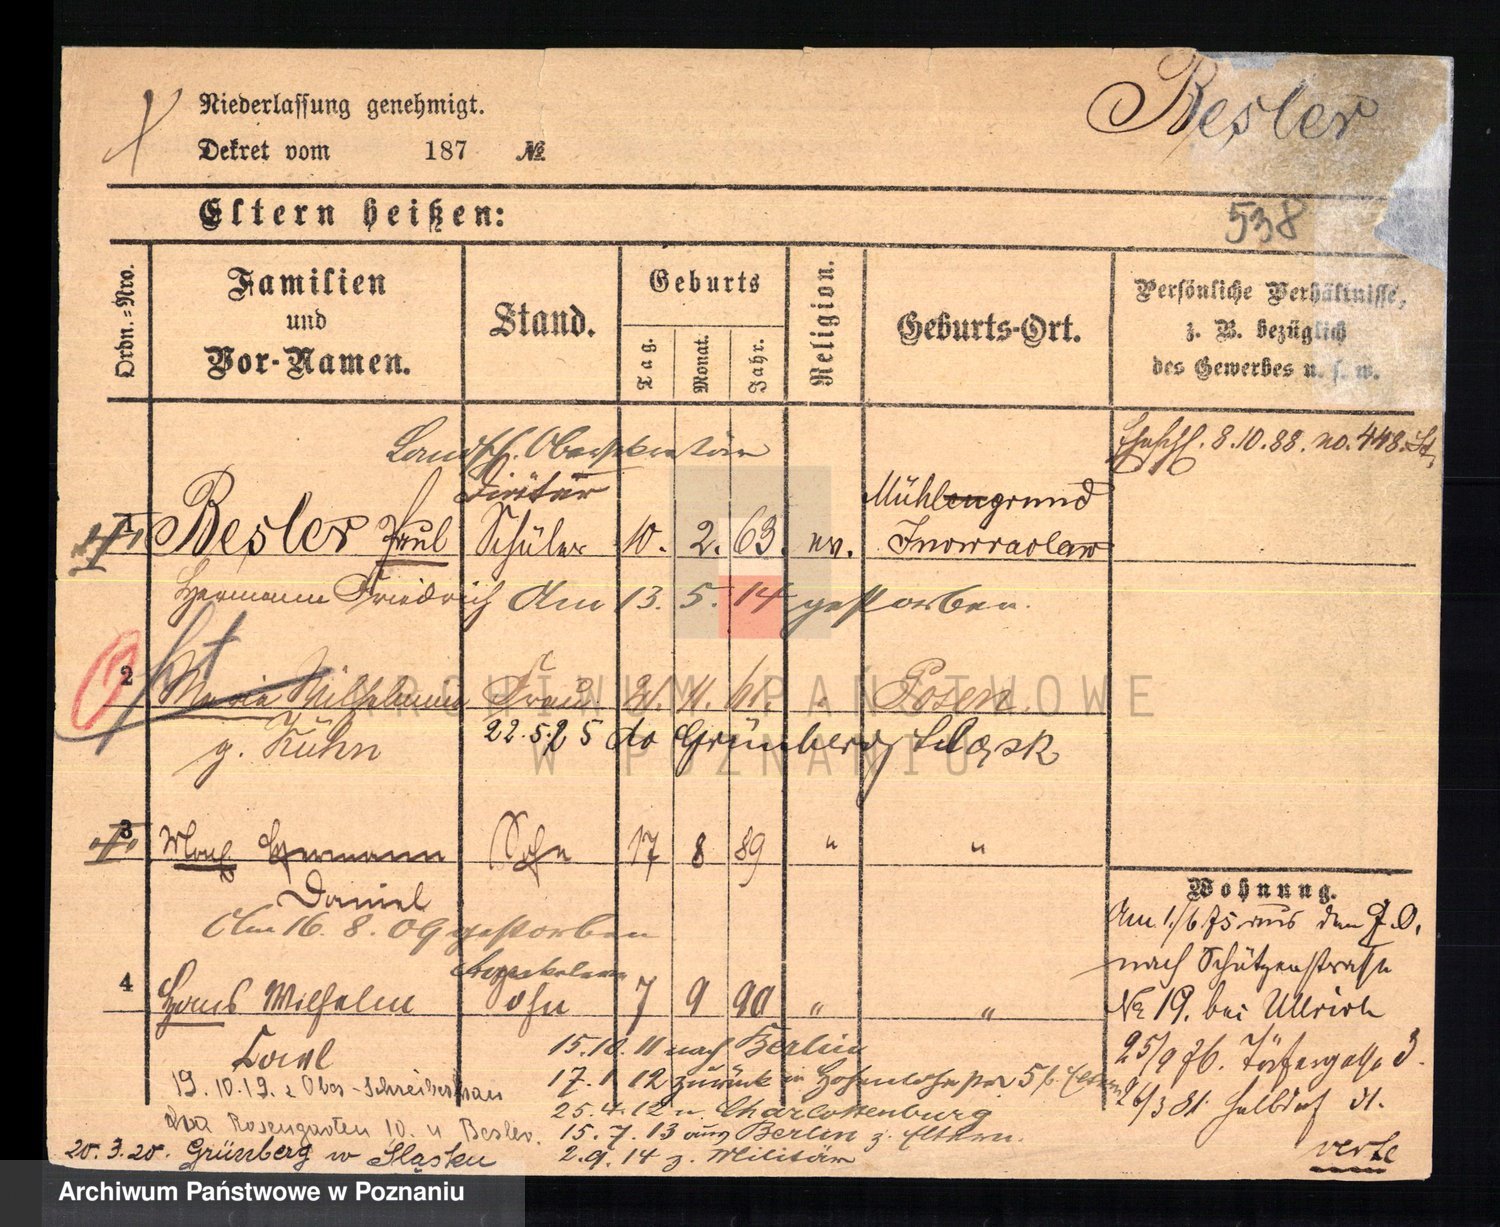 Niederlassung genehmigt.
Dekret vom 187 №
Besler
538
Eltern heißen:
Ordn.-Nro.
Familien
und
Vor-Namen.
Stand.
Geburts
Tag.
Monat.
Jahr.
Religion.
Geburts-Ort.
Persönliche Verhältnisse,
z. B. bezüglich
des Gewerbes u. s. w.
Eheschl. 8.10.88. no. 448. St.
1 Besler Paul Schüler 10. 2. 63. ev. Mühlengrund
Inowraclaw
Hermann Friedrich Am 13. 5. 14 gestorben.
2 Marie Wilhelmine Frau 2. 11. 61. Posen.
g. Kühn 22.5.25 do Grünberg Śląsk
3 Max Hermann Sohn 17 8 89 " "
Daniel
Am 16. 8. 09 gestorben
4 Hans Wilhelm Sohn 7 9 90 " "
Carl
15.10.11 nach Berlin
17.1.12 zurück
25.4.12 n. Charlottenburg
15.7.13 aus Berlin z. Eltern.
2.9.14 z. Militär
19.10.19. Ober-Schreiberhau
Rosengarten 10. Besler.
20.3.20. Grünberg w Śląsku
Wohnung.
Am 1./6 75 aus
nach Schützenstraße
No 19. bei Ullrich
25/9 76. 3.
26/3 81 Halbdorf st.
verte
ARCHIWUM PAŃSTWOWE
W POZNANIU
Archiwum Państwowe w Poznaniu